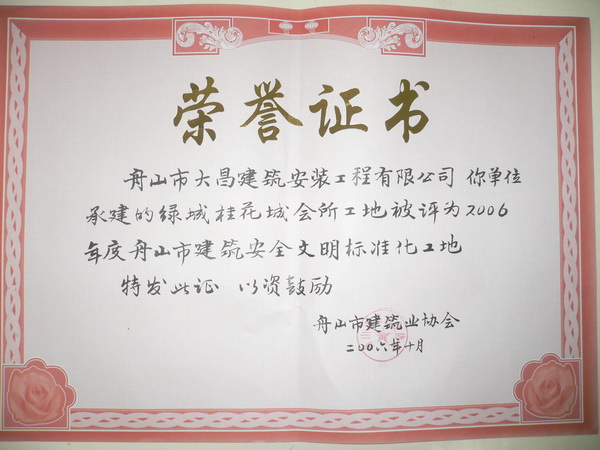 荣誉证书
舟山市大昌建筑安装工程有限公司 你单位
承建的绿城桂花城会所工地被评为2006
年度舟山市建筑安全文明标准化工地
特发此证 以资鼓励
舟山市建筑业协会
二00六年十月